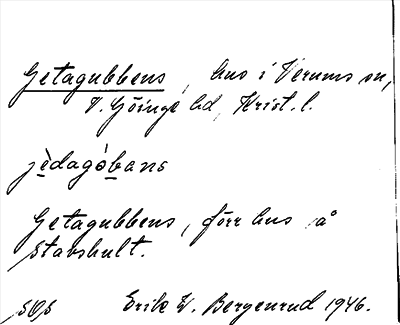 Getagubbens, hus i Verums sn,
V. Göinge hd, Krist. l.
jèdagòbans
Getagubbens, förr hus på
Stavshult.
Erik W. Bergenrud 1946.